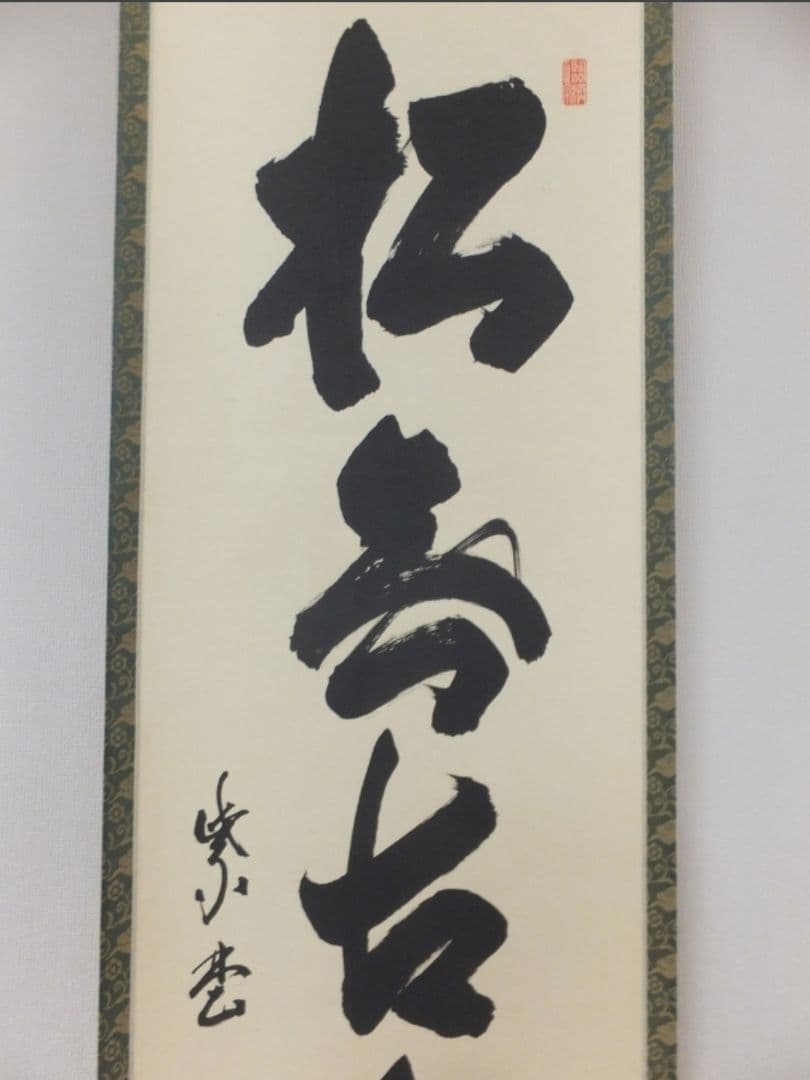 松無古
紫埜